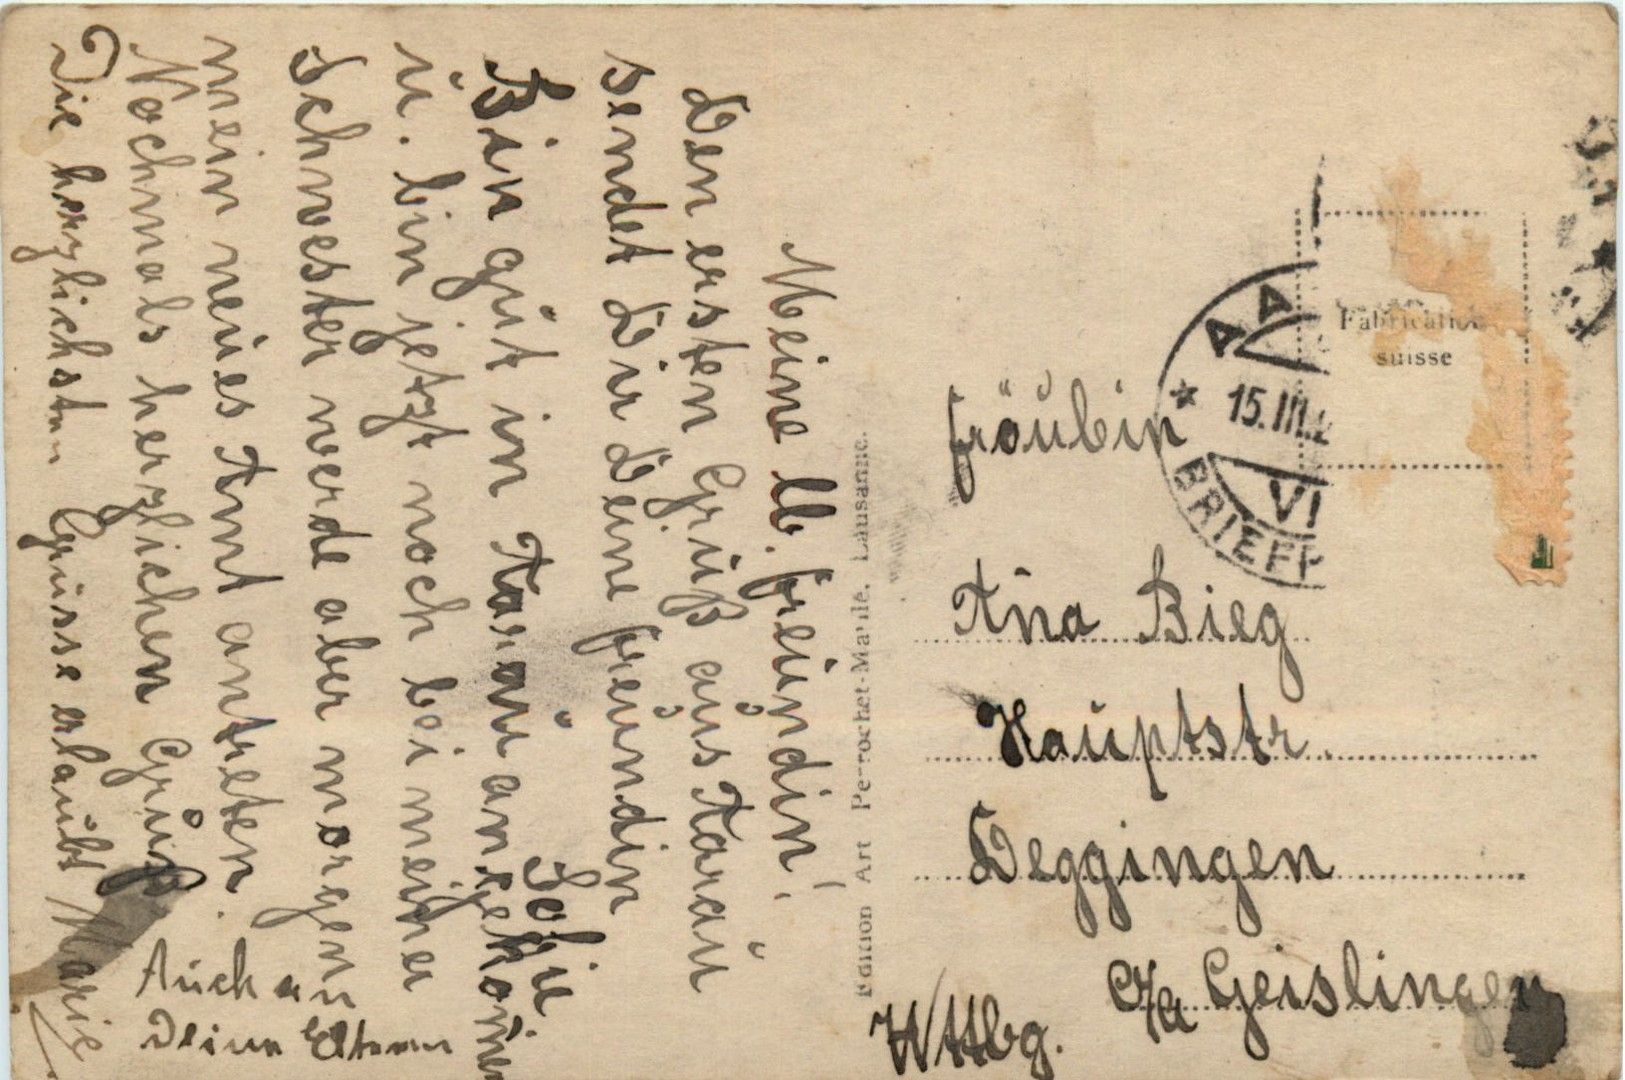 Meine lb. Freundin!
Den ersten Grüß aüs Aaraü
sendet Dir Deine Freundin
Sofie.
Bin güt in Aaraü angekom̄en
ü. bin jetzt noch bei meiner
Schwester werde aber morgen
mein neües Amt antreten.
Nochmals herzlichen Grüß
Die herzlichsten Grüsse erlaübt Marie
Aüch an
Deine Eltern
Edition Art Perrochet-Matile, Lausanne.
Fabrication
suisse
AA
15. III. 2
VI
BRIEF
Fräülein
Aña Bieg
Haüptstr.
Deggingen
O/A Geislingen
Wttbg.